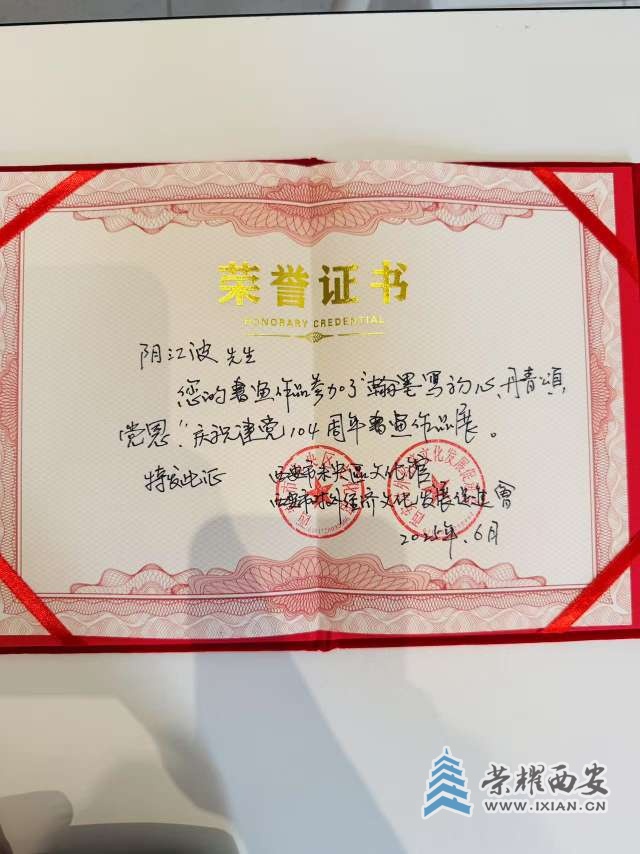 荣誉证书
HONORARY CREDENTIAL
阴江波 先生
您的書画作品参加了"瀚墨寫初心、丹青頌
党恩"庆祝建党104周年書画作品展。
特发此证 西安市未央區文化馆
西安市 经济文化发展促進會
2025年.6月
荣耀西安
WWW.IXIAN.CN